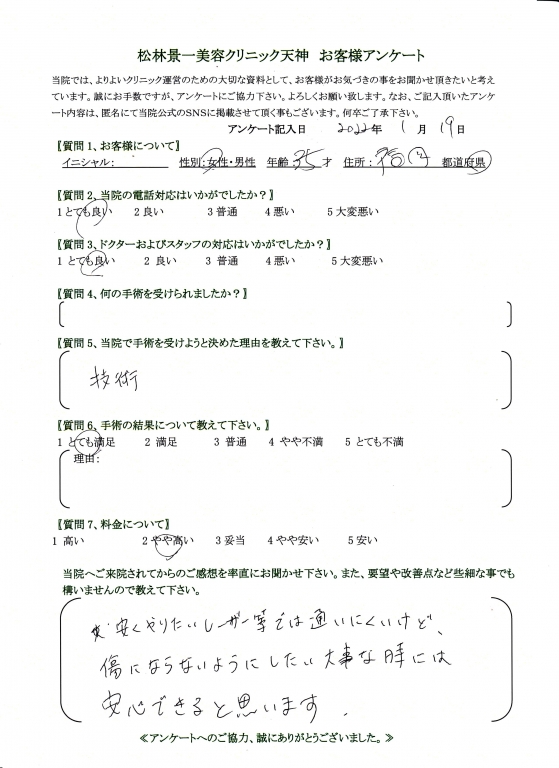 松林景一美容クリニック天神 お客様アンケート
当院では、よりよいクリニック運営のための大切な資料として、お客様がお気づきの事をお聞かせ頂きたいと考え
ています。誠にお手数ですが、アンケートにご協力下さい。よろしくお願い致します。なお、ご記入頂いたアンケ
ート内容は、匿名にて当院公式のSNSに掲載させて頂く事もございます。何卒ご了承下さい。
アンケート記入日 2022年 1月 19日
〖質問1、お客様について〗
イニシャル: 性別:女性・男性 年齢 35才 住所: 福岡 都道府県
〖質問2、当院の電話対応はいかがでしたか?〗
1とても良い 2良い 3普通 4悪い 5大変悪い
〖質問3、ドクターおよびスタッフの対応はいかがでしたか?〗
1とても良い 2良い 3普通 4悪い 5大変悪い
〖質問4、何の手術を受けられましたか?〗
〖質問5、当院で手術を受けようと決めた理由を教えて下さい。〗
技術
〖質問6、手術の結果について教えて下さい。〗
1とても満足 2満足 3普通 4やや不満 5とても不満
理由:
〖質問7、料金について〗
1高い 2やや高い 3妥当 4やや安い 5安い
当院へご来院されてからのご感想を率直にお聞かせ下さい。また、要望や改善点など些細な事でも
構いませんので教えて下さい。
安くやりたいレーザー等では通いにくいけど、
傷にならないようにしたい大事な時には
安心できると思います.
≪アンケートへのご協力、誠にありがとうございました。≫